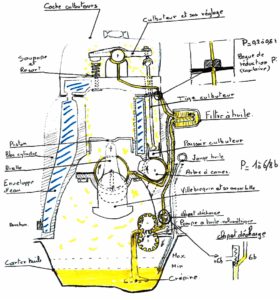 Cache culbuteurs
Culbuteur et son réglage
Soupape
et
Ressort
Bague de
réduction P.
Tige culbuteur
Filtre à huile
Piston
Bloc cylindre
Bielle
Enveloppe
d'eau
Poussoir culbuteur
Jauge huile
Arbre à cames
P= 1 à 6/8b
Vilebrequin et sa
Clapet décharge
Pompe à huile
Clapet décharge
Bouchon
Carter huile
Max
Min
Crépine
6b